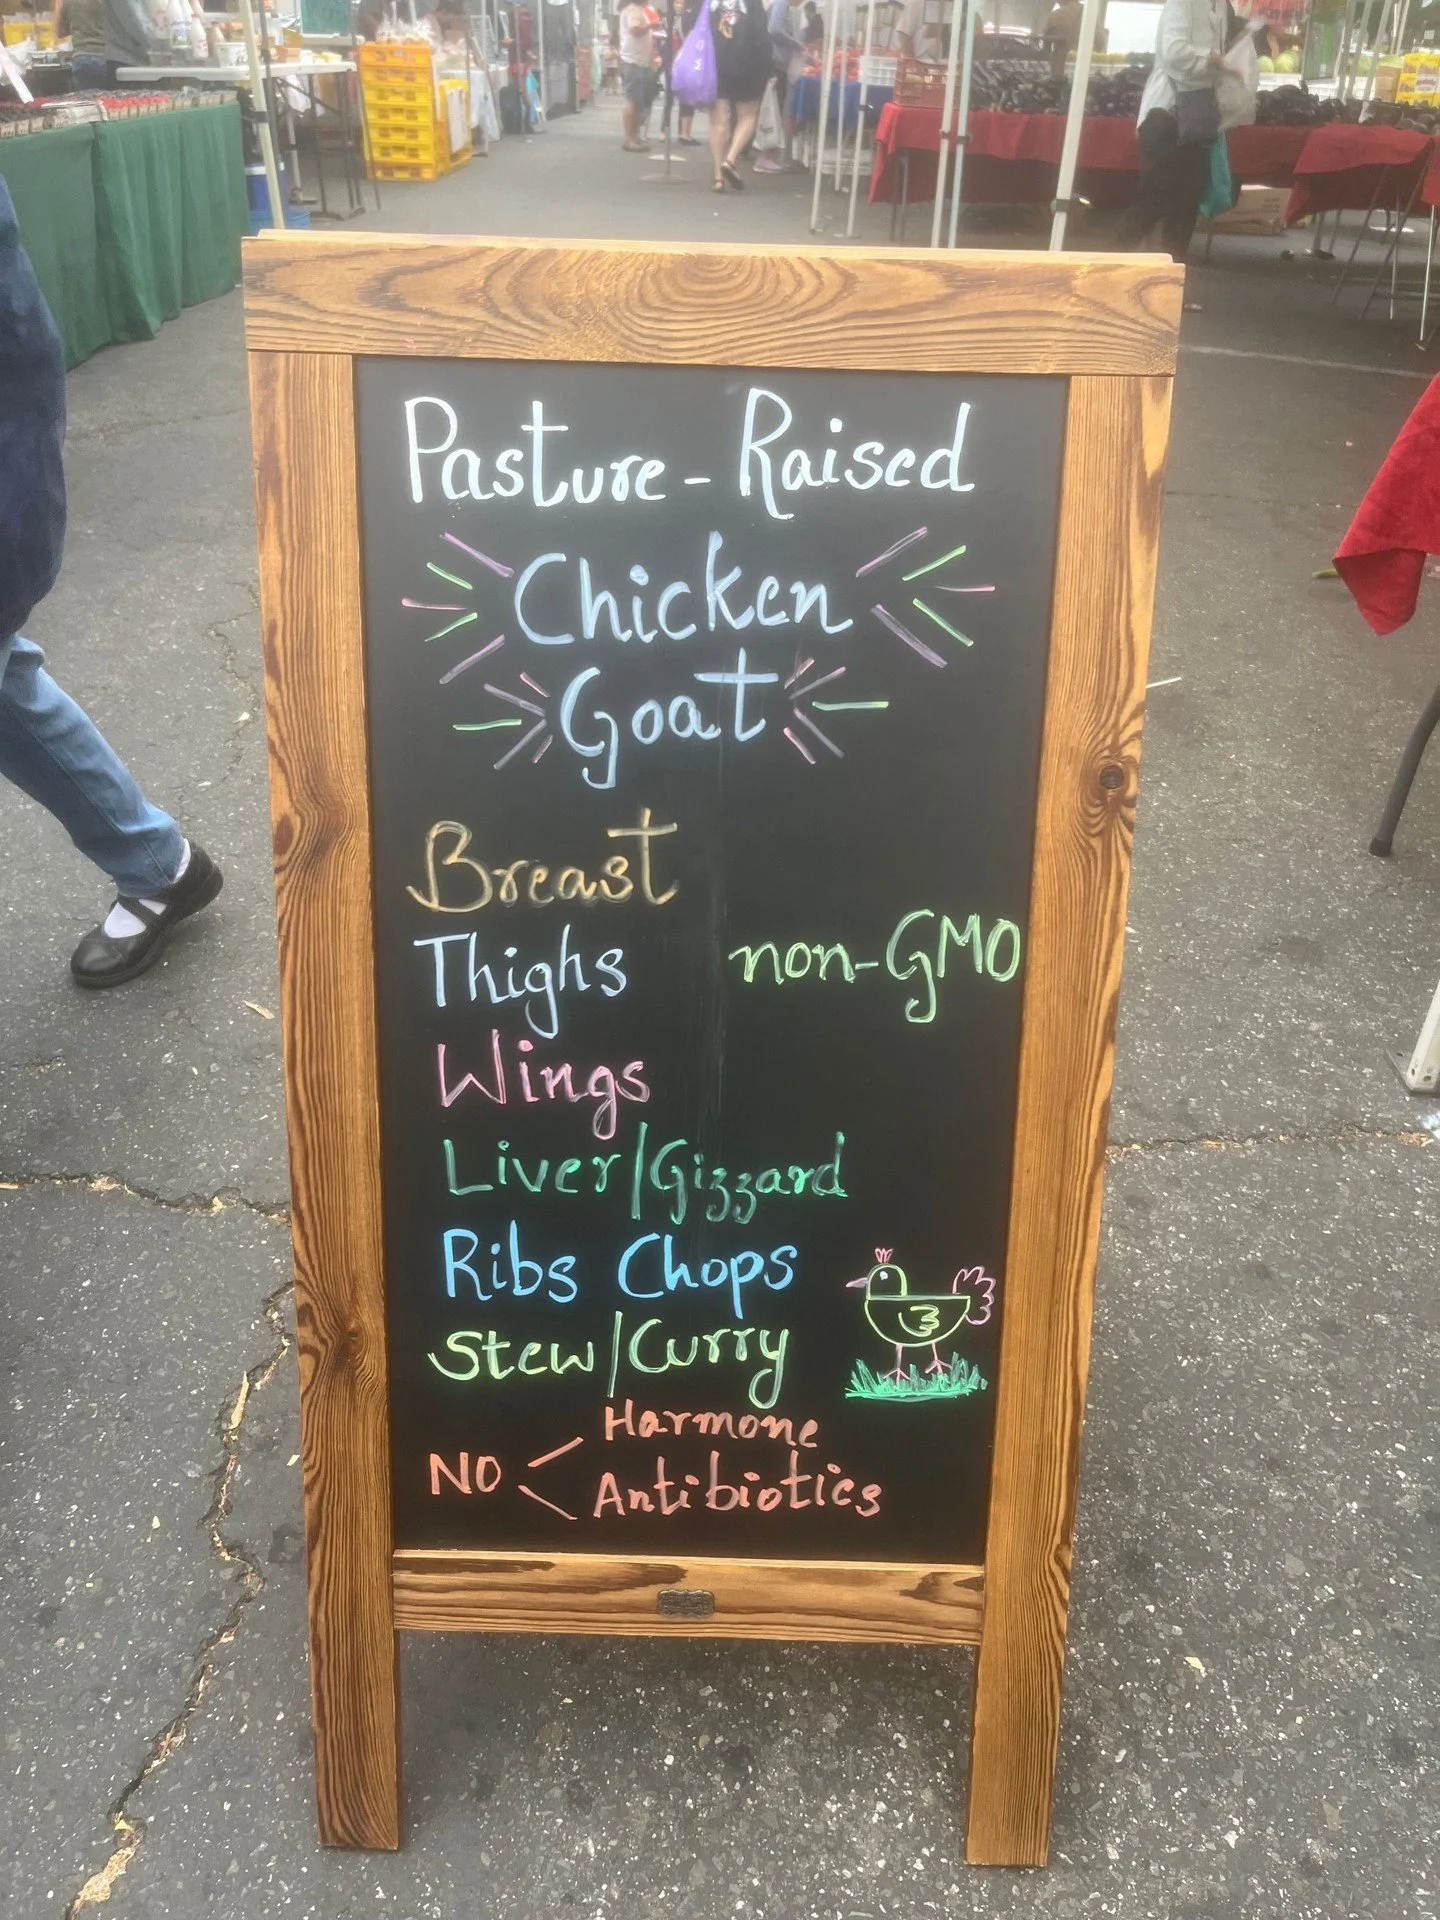 Pasture-Raised
Chicken
Goat
Breast
Thighs
non-GMO
Wings
Liver/Gizzard
Ribs Chops
Stew/Curry
NO < Harmone
Antibiotics